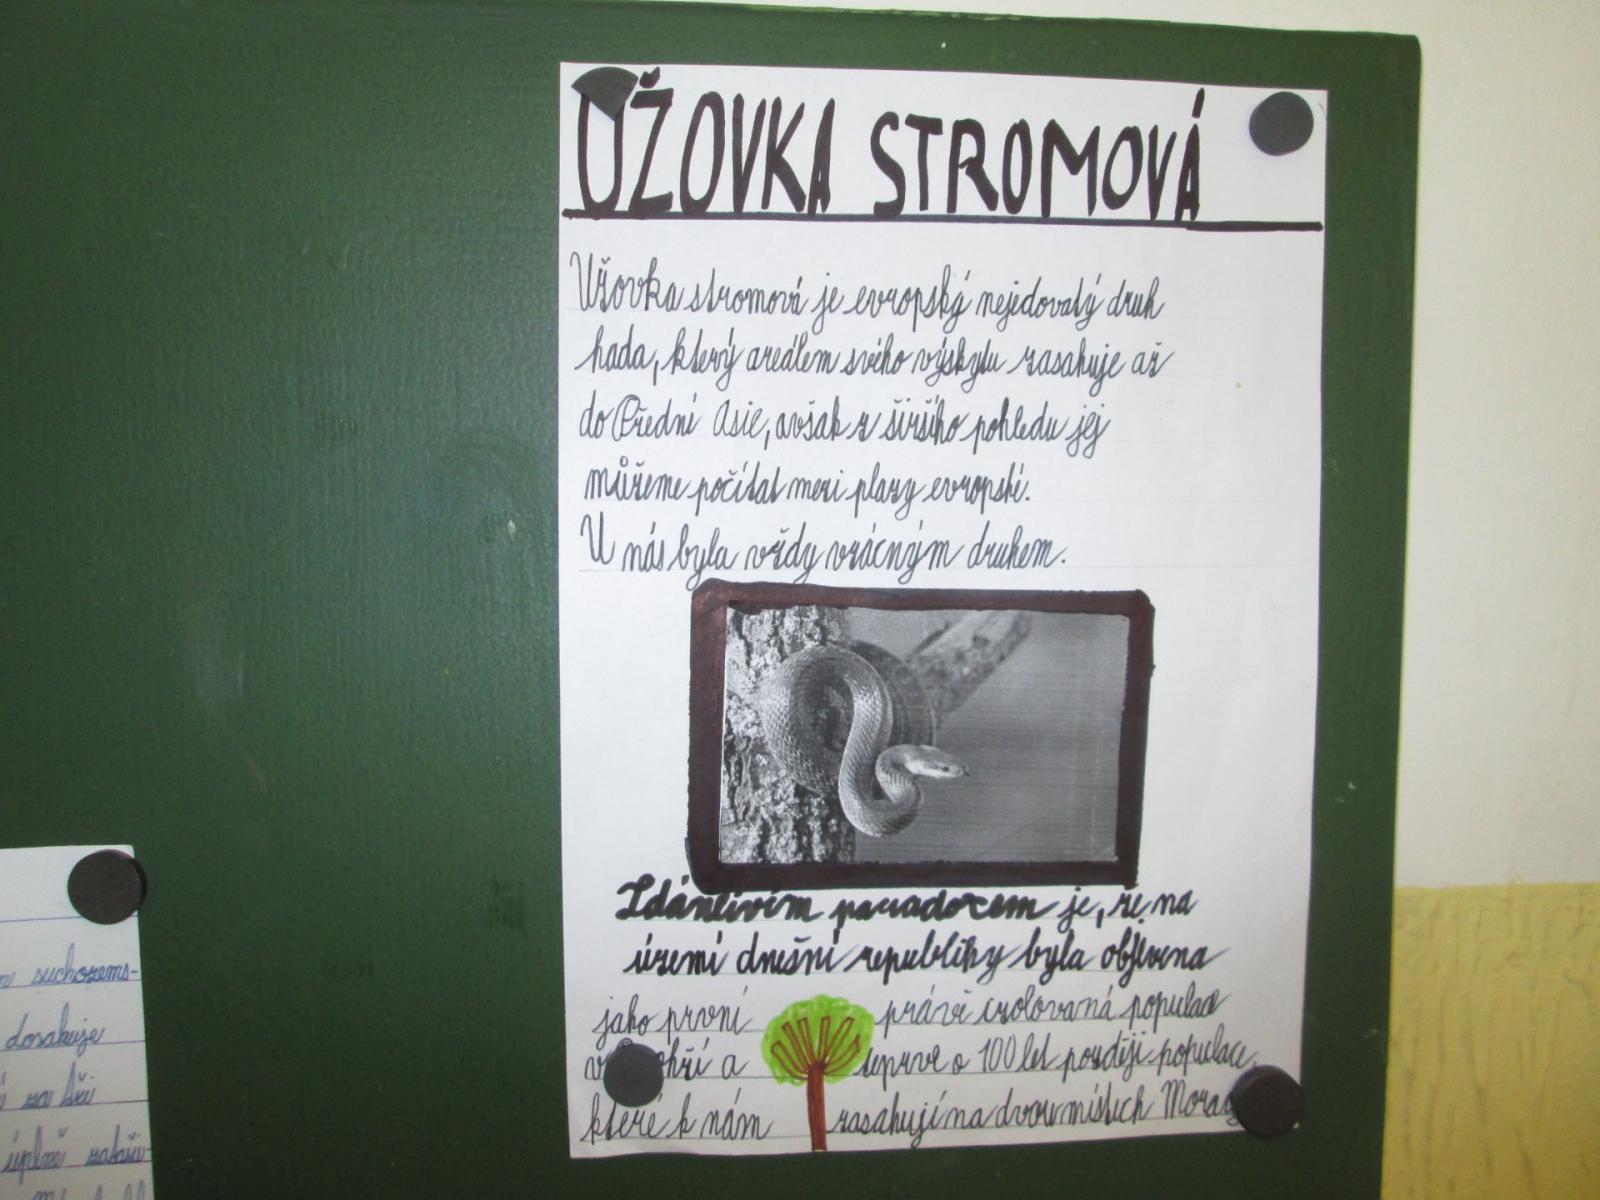 UŽOVKA STROMOVÁ
Užovka stromová je evropský nejedovatý druh
hada, který areálem svého výskytu zasahuje až
do Přední Asie, avšak z širšího pohledu jej
můžeme počítat mezi plazy evropské.
U nás byla vždy vzácným druhem.
Zdánlivím paradoxem je, že na
území dnešní republiky byla objevena
jako první právě izolovaná populace
v a teprve o 100 let později populace,
které k nám zasahují na dvou místech
suchozems-
dosahuje
za tři
úplně